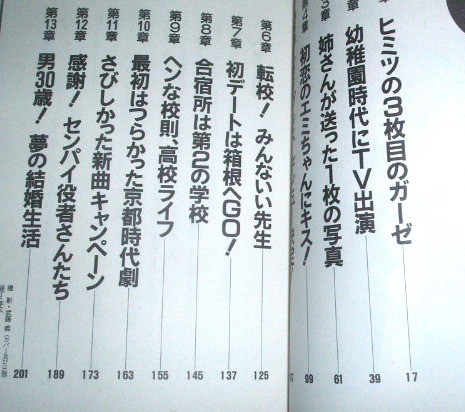 ヒミツの3枚目のガーゼ 17
幼稚園時代にTV出演 39
3章 姉さんが送った1枚の写真 61
第4章 初恋のエミちゃんにキス! 99
第6章 転校! みんないい先生 125
第7章 初デートは箱根へGO! 137
第8章 合宿所は第2の学校 145
第9章 ヘンな校則、高校ライフ 155
第10章 最初はつらかった京都時代劇 163
第11章 さびしかった新曲キャンペーン 173
第12章 感謝! センパイ役者さんたち 189
第13章 男30歳! 夢の結婚生活 201